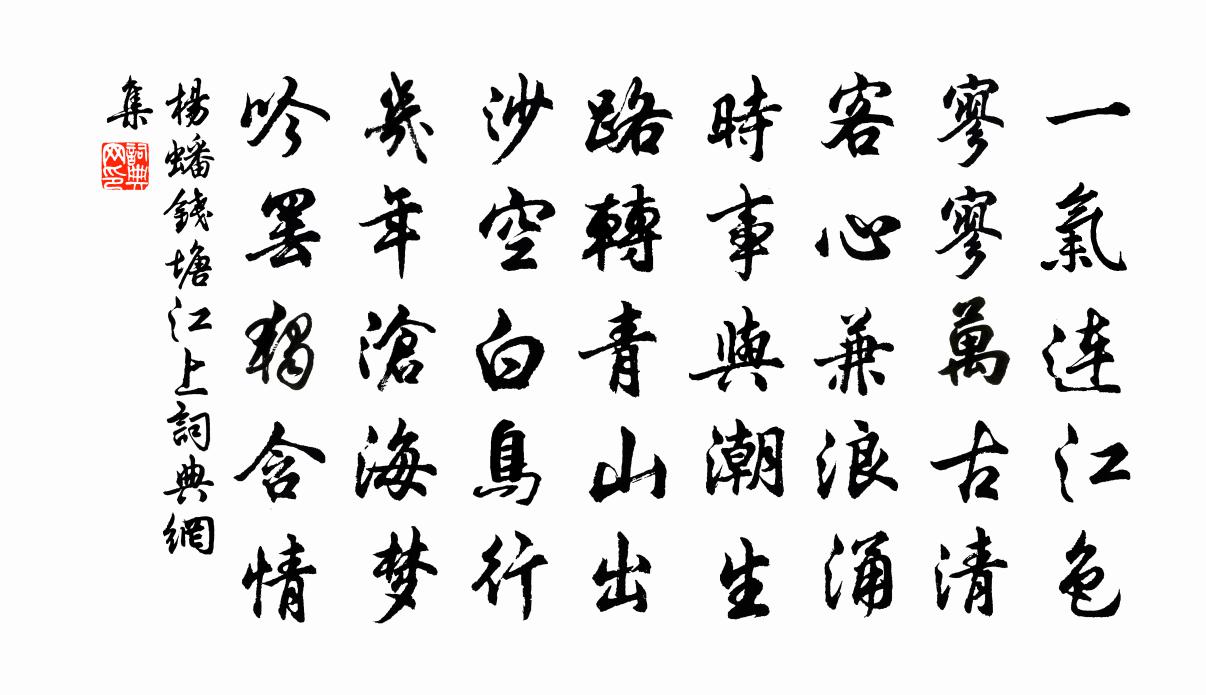 一氣連江色
寥寥萬古清
客心兼浪涌
時事與潮生
路轉青山出
沙空白鳥行
幾年滄海梦
吟罷獨含情
楊蟠錢塘江上詞典網
集
詞典網印